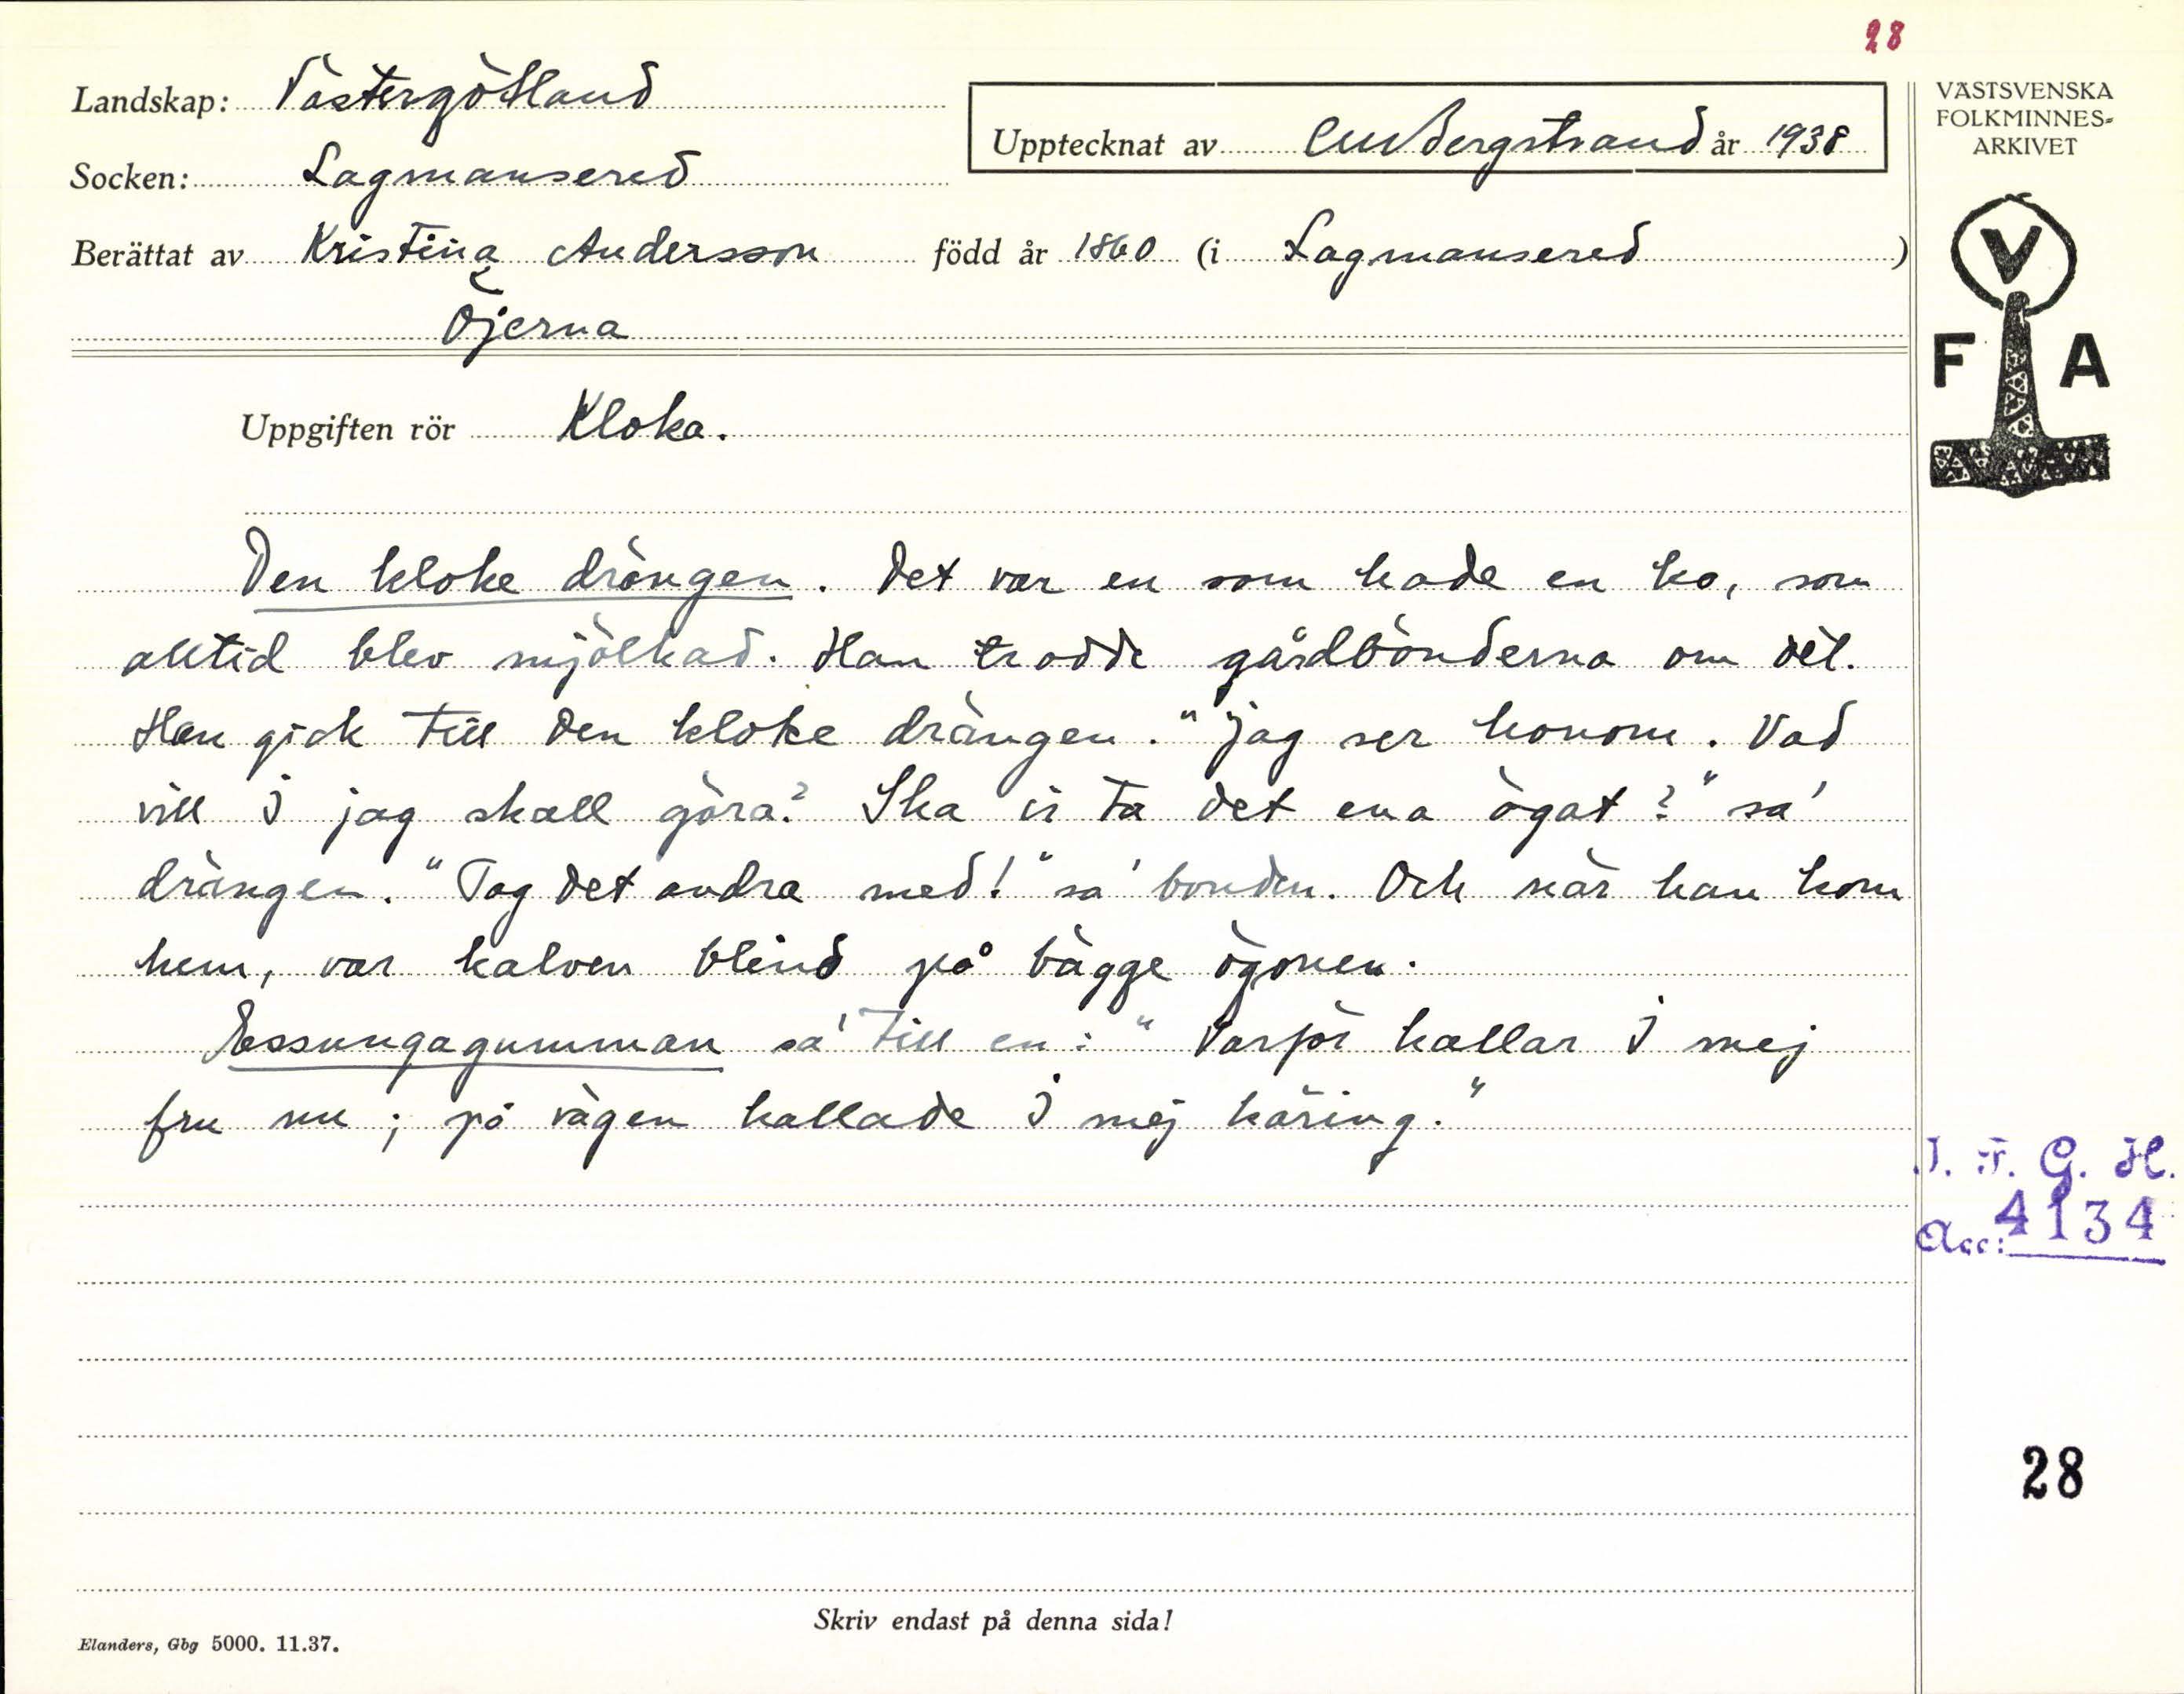 28
Landskap: Västergötland
Upptecknat av CM Bergstrand år 1938
VÄSTSVENSKA
FOLKMINNES-
ARKIVET
Socken: Lagmansered
Berättat av Kristina Andersson född år 1860 (i Lagmansered)
Öjerna
V
F A
Uppgiften rör Kloka.
Den kloke drängen. Det var en som hade en ko, som
alltid blev mjölkad. Han trodde gårdbönderna om det.
Han gick till den kloke drängen. "Jag ser honom. Vad
vill I jag skall göra? Ska vi ta det ena ögat?" sa'
drängen. "Tag det andra med!" sa' bonden. Och när han kom
hem, var kalven blind på bägge ögonen.
Essungagumman sa' till en: "Varför kallar I mej
fru nu; på vägen kallade I mej käring."
I. F. G. H.
Acc: 4134
28
Skriv endast på denna sida!
Elanders, Gbg 5000. 11.37.